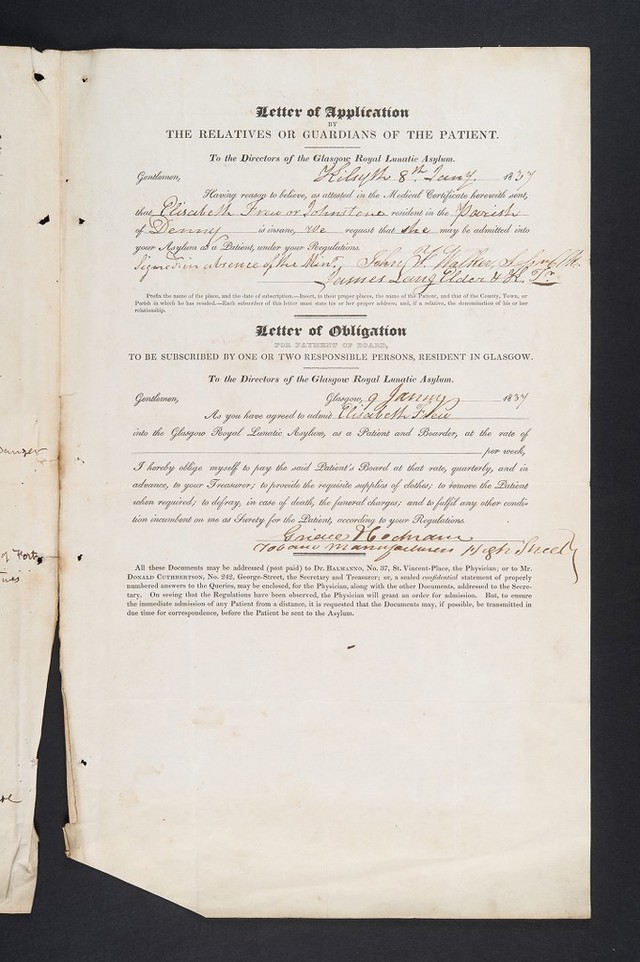 Letter of Application
BY
THE RELATIVES OR GUARDIANS OF THE PATIENT.
To the Directors of the Glasgow Royal Lunatic Asylum.
Gentlemen, Kilsyth 8th Jany. 1837
Having reason to believe, as attested in the Medical Certificate herewith sent,
that Elisabeth Frew or Johnstone resident in the Parish
of Denny is insane, we request that she may be admitted into
your Asylum as a Patient, under your Regulations.
Signed in absence of the Minr. John Walker
James Lang Elder & K. Tr.
Prefix the name of the place, and the date of subscription.—Insert, in their proper places, the name of the Patient, and that of the County, Town, or
Parish in which he has resided.—Each subscriber of this letter must state his or her proper address; and, if a relative, the denomination of his or her
relationship.
Letter of Obligation
FOR PAYMENT OF BOARD,
TO BE SUBSCRIBED BY ONE OR TWO RESPONSIBLE PERSONS, RESIDENT IN GLASGOW.
To the Directors of the Glasgow Royal Lunatic Asylum.
Gentlemen, Glasgow, 9 Janny 1837
As you have agreed to admit Elisabeth Frew
into the Glasgow Royal Lunatic Asylum, as a Patient and Boarder, at the rate of
per week,
I hereby oblige myself to pay the said Patient's Board at that rate, quarterly, and in
advance, to your Treasurer; to provide the requisite supplies of clothes; to remove the Patient
when required; to defray, in case of death, the funeral charges; and to fulfil any other condi-
tion incumbent on me as Surety for the Patient, according to your Regulations.
Tobacco Manufacturers High Street
All these Documents may be addressed (post paid) to Dr. BALMANNO, No. 37, St. Vincent-Place, the Physician; or to Mr.
DONALD CUTHBERTSON, No. 242, George-Street, the Secretary and Treasurer; or, a sealed confidential statement of properly
numbered answers to the Queries, may be enclosed, for the Physician, along with the other Documents, addressed to the Secre-
tary. On seeing that the Regulations have been observed, the Physician will grant an order for admission. But, to ensure
the immediate admission of any Patient from a distance, it is requested that the Documents may, if possible, be transmitted in
due time for correspondence, before the Patient be sent to the Asylum.